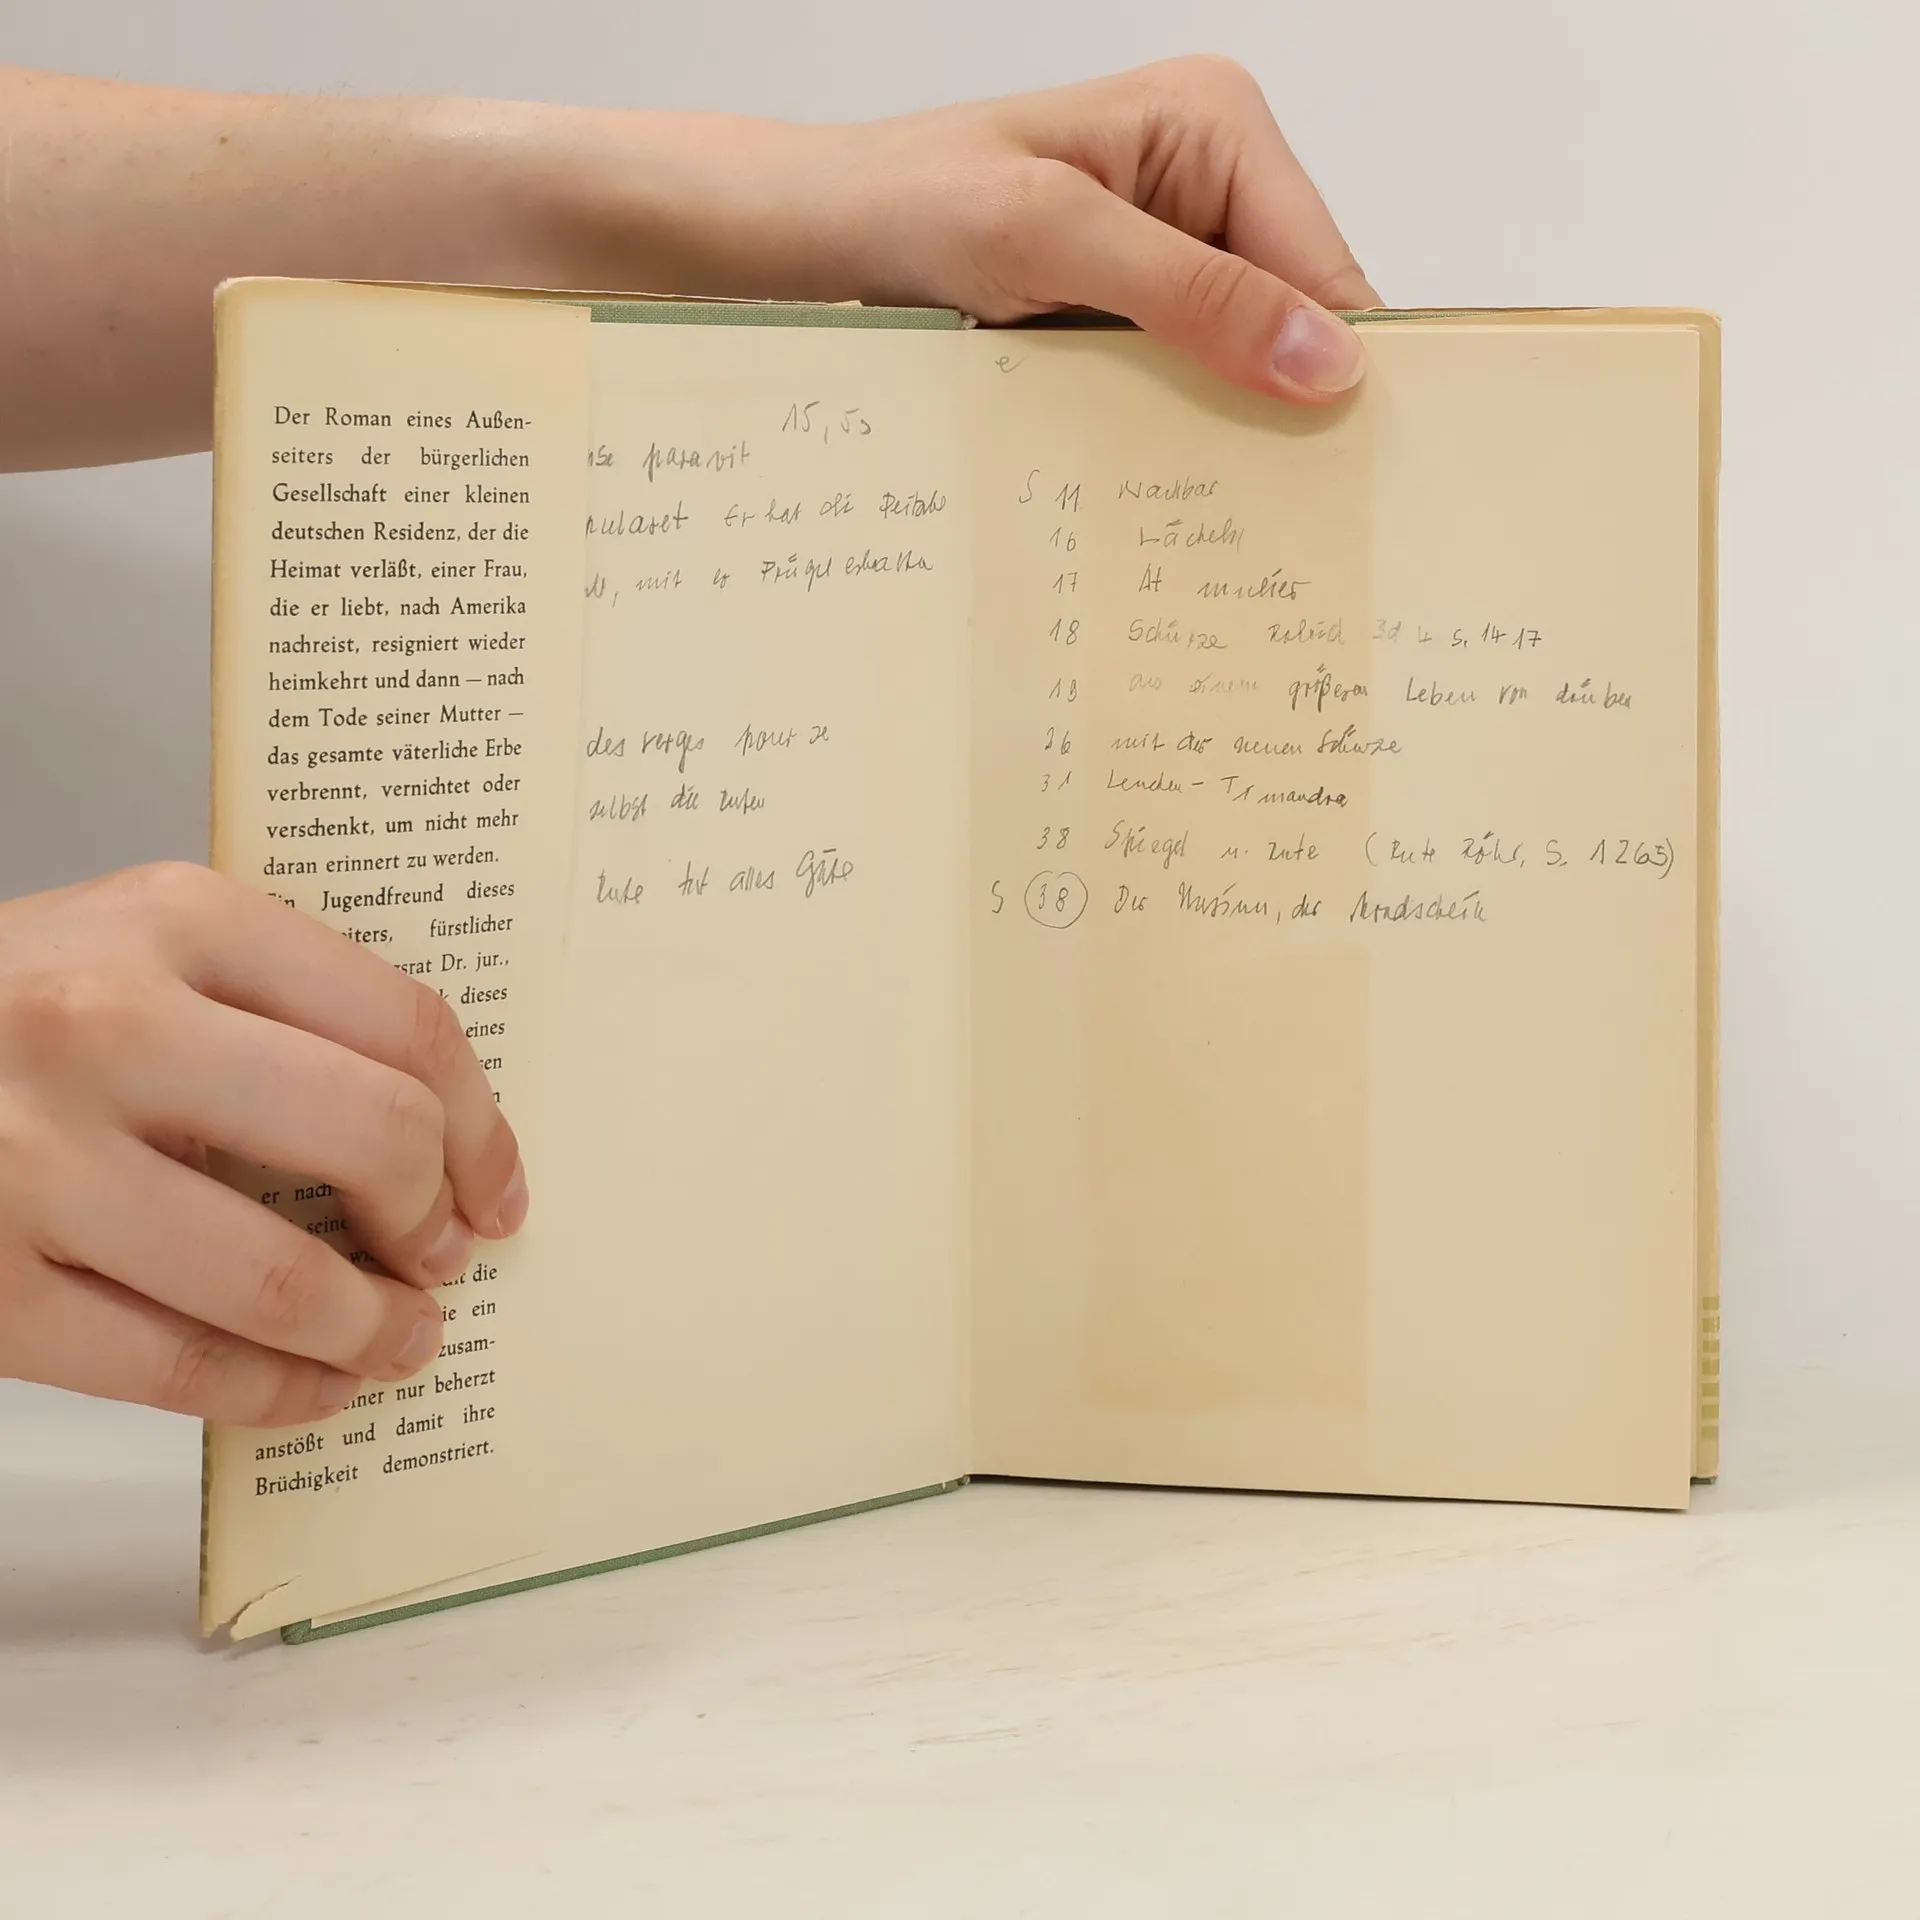 Der Roman eines Außen-
seiters der bürgerlichen
Gesellschaft einer kleinen
deutschen Residenz, der die
Heimat verläßt, einer Frau,
die er liebt, nach Amerika
nachreist, resigniert wieder
heimkehrt und dann — nach
dem Tode seiner Mutter —
das gesamte väterliche Erbe
verbrennt, vernichtet oder
verschenkt, um nicht mehr
daran erinnert zu werden.
Jugendfreund dieses
fürstlicher
Dr. jur.,
dieses
eines
er nach
die
ein
zusam-
nur beherzt
anstößt und damit ihre
Brüchigkeit demonstriert.
15,50
paravit
Er hat die
mit er Prügel
des verges pour se
selbst die Ruten
Rute tut alles Gute
e
S 11 Nachbar
16 Lächeln
17 At mulier
18 Schürze S. 14-17
19 aus einem größeren Leben von drüben
26 mit der neuen Schürze
31 Lenchen - Timandra
38 Spiegel u. Rute (Rute Röhr, S. 1265)
S 38 Der der Mondschein